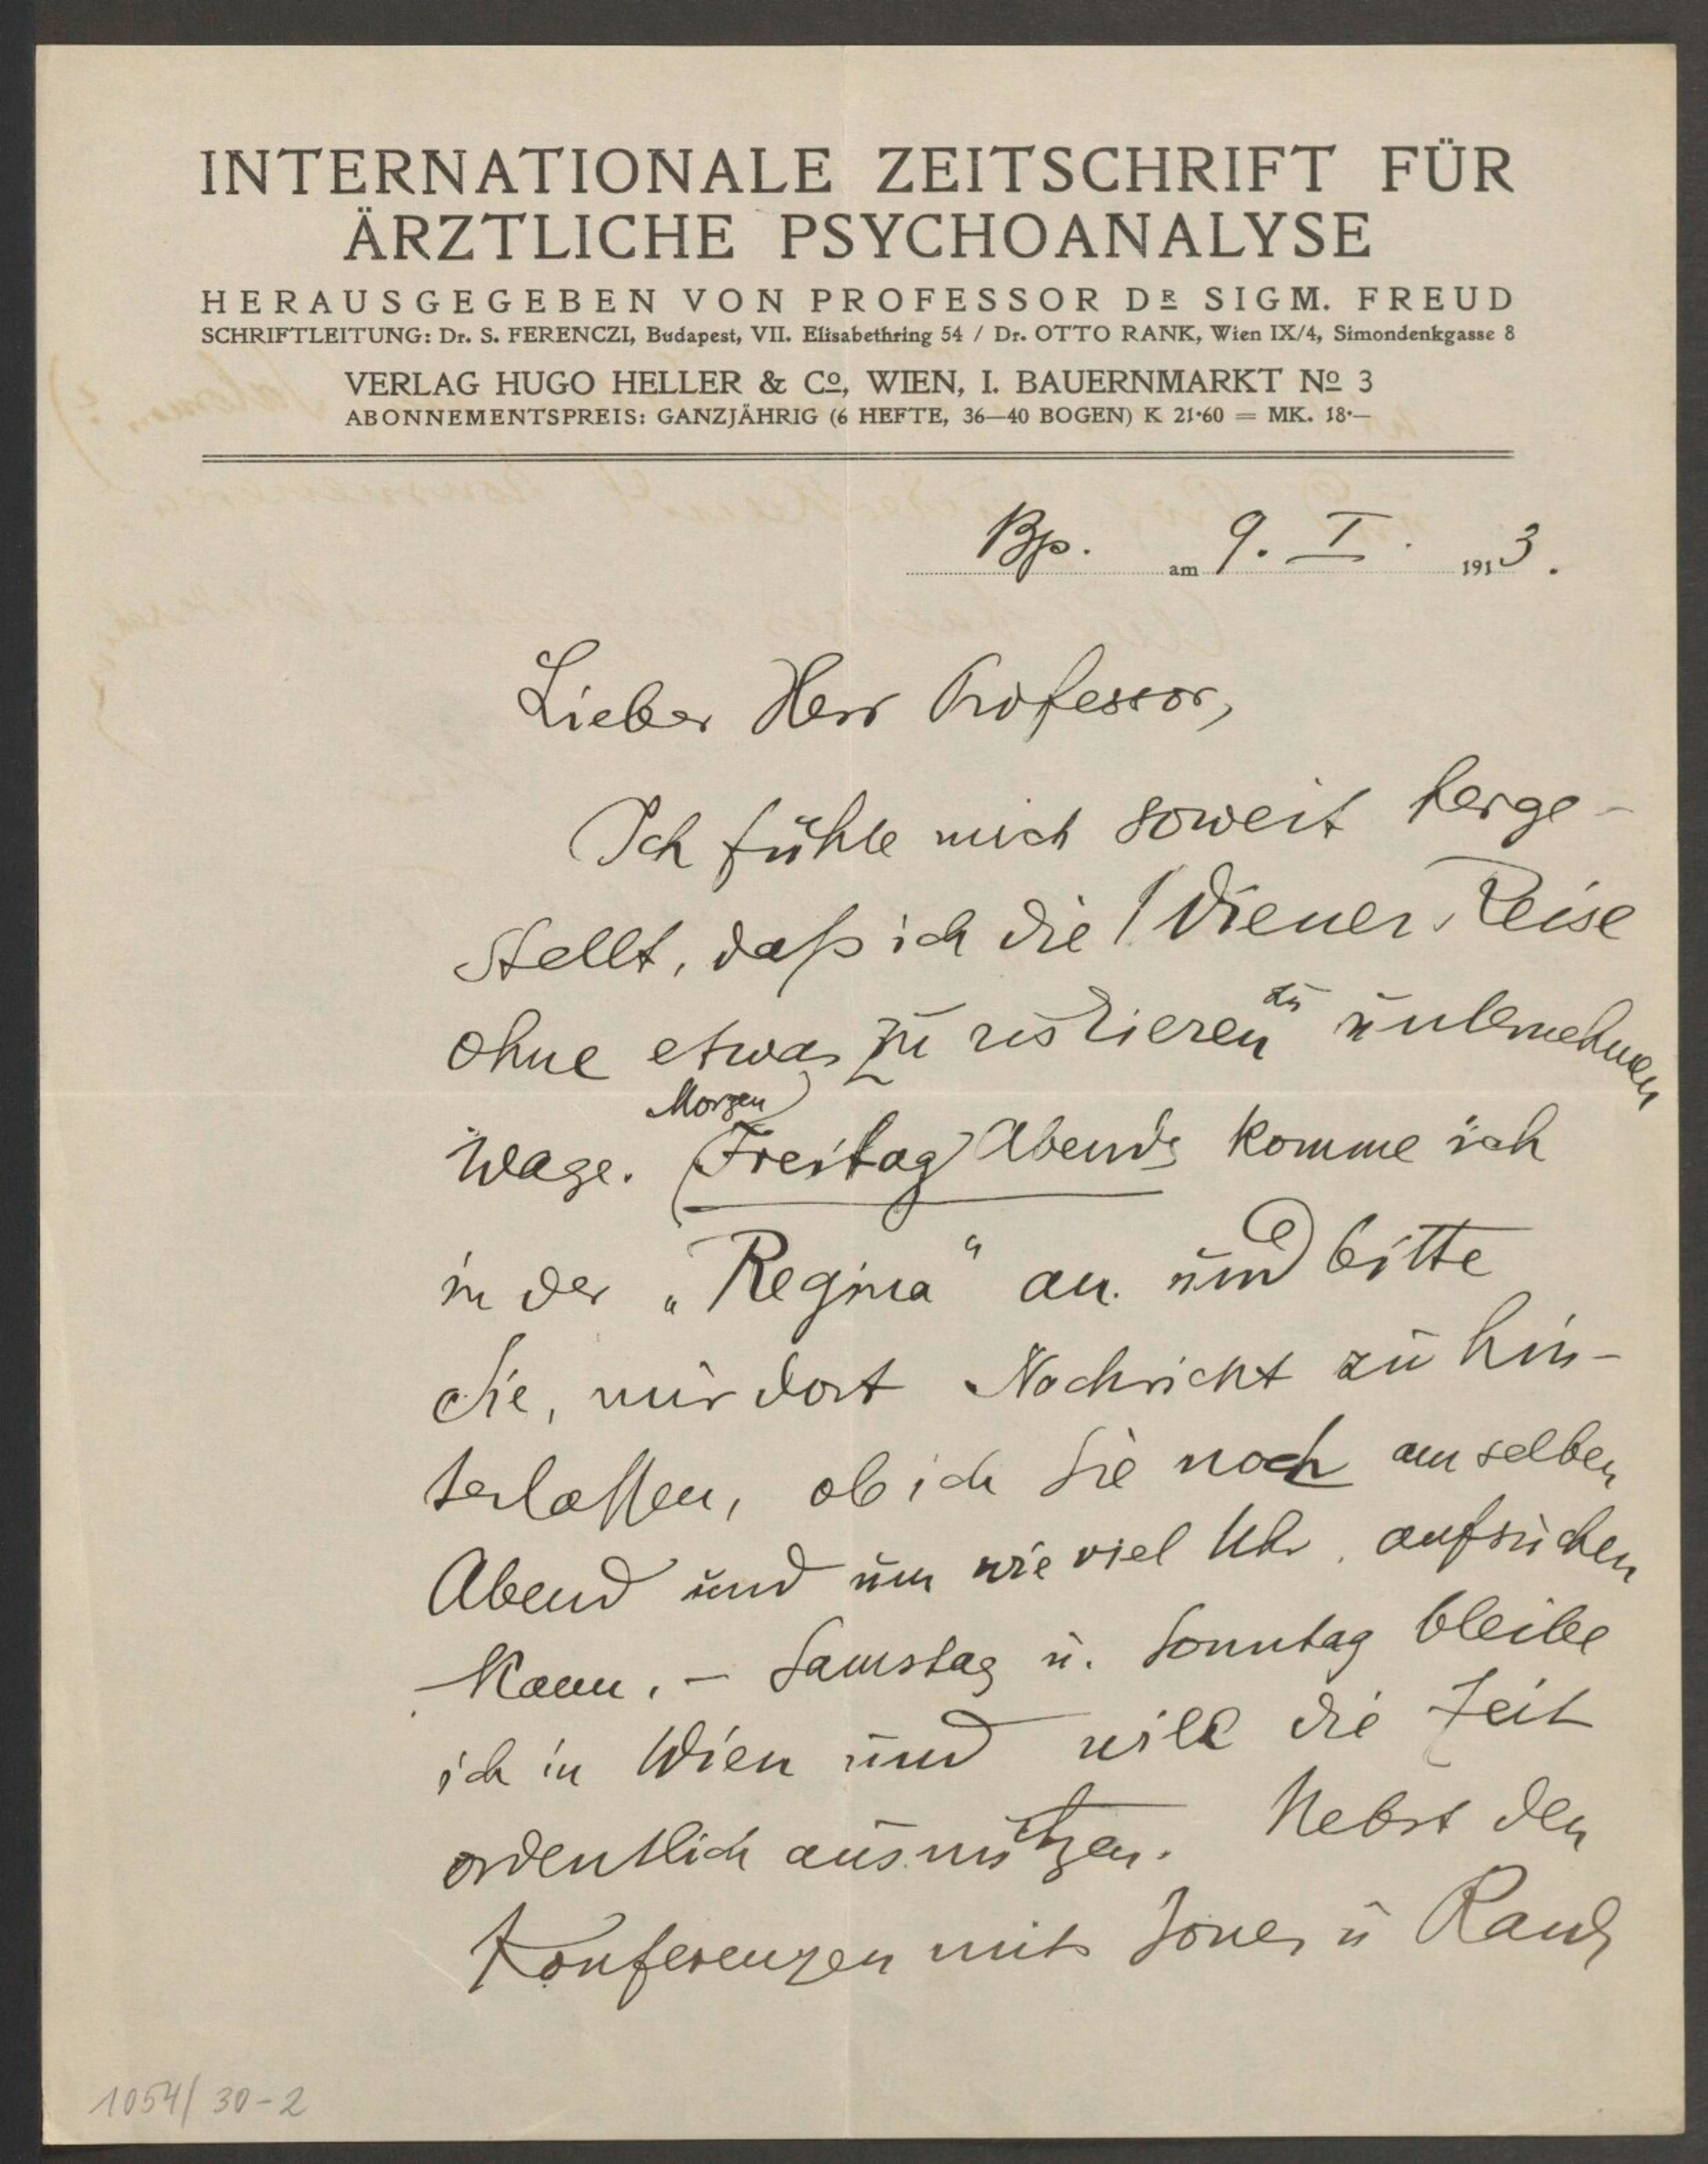 INTERNATIONALE ZEITSCHRIFT FÜR
ÄRZTLICHE PSYCHOANALYSE
HERAUSGEGEBEN VON PROFESSOR DR SIGM. FREUD
SCHRIFTLEITUNG: Dr. S. FERENCZI, Budapest, VII. Elisabethring 54 / Dr. OTTO RANK, Wien IX/4, Simondenkgasse 8
VERLAG HUGO HELLER & Co, WIEN, I. BAUERNMARKT No 3
ABONNEMENTSPREIS: GANZJÄHRIG (6 HEFTE, 36—40 BOGEN) K 21·60 = MK. 18·—
Bp. am 9. I. 1913.
Lieber Herr Professor,
Ich fühle mich soweit herge-
stellt, daß ich die Wiener Reise
ohne etwas zu riskieren zu unternehmen
wage. (Morgen) Freitag Abends komme ich
in der „Regina“ an. und bitte
Sie, mir dort Nachricht zu hin-
terlassen, ob ich Sie noch am selben
Abend und um wie viel Uhr aufsuchen
kann. – Samstag u. Sonntag bleibe
ich in Wien und will die Zeit
ordentlich ausnützen. Nebst den
Konferenzen mit Jones u Rank
1054/30-2